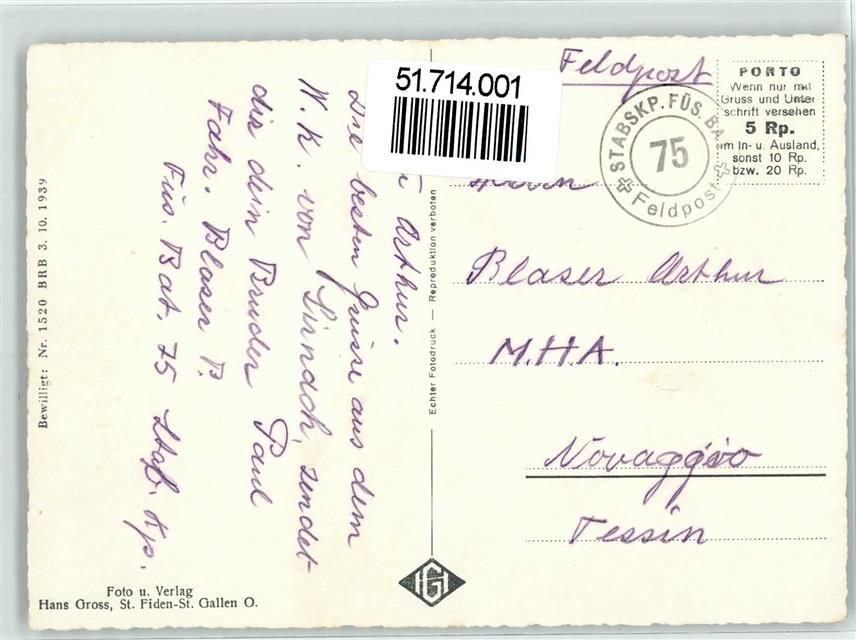 51.714.001
Feldpost
PORTO
Wenn nur mit
Gruss und Unter
schrift versehen
5 Rp.
im In- u. Ausland,
sonst 10 Rp.
bzw. 20 Rp.
STABSKP. FÜS. BA
75
Feldpost
Herrn
Blaser Arthur
M.H.A.
Novaggio
Tessin
Arthur.
Die besten Grüsse aus dem
W.K. von Sirnach, sendet
dir dein Bruder Paul
Fahr. Blaser P.
Füs. Bat. 75 Stab. Kp.
Echter Fotodruck — Reproduktion verboten
Bewilligt: Nr. 1520 BRB 3. 10. 1939
Foto u. Verlag
Hans Gross, St. Fiden-St. Gallen O.